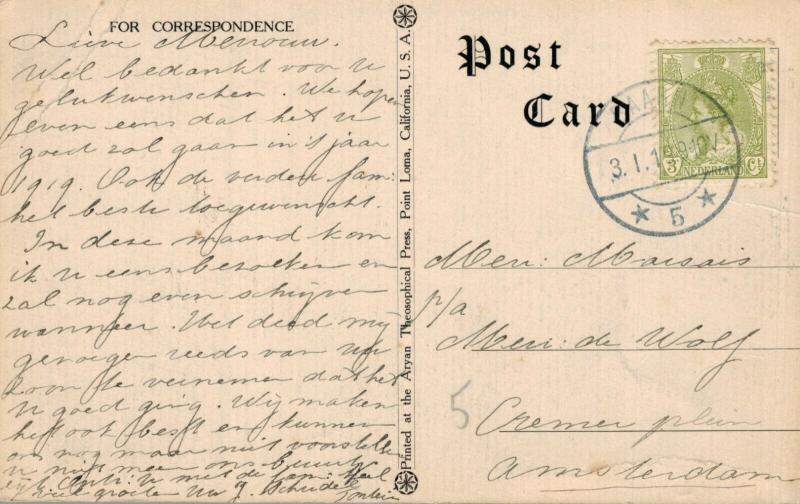 FOR CORRESPONDENCE
Lieve Mevrouw.
Wel bedankt voor u
gelukwenschen. We hopen
even eens dat het u
goed zal gaan in 't jaar
1919. Ook de verdere fam:
het beste toegewenscht.
In deze maand kom
ik u eens bezoeken en
zal nog even schrijven
wanneer. Het deed mij
genoegen reeds van uw
zoon te vernemen dat het
u goed ging. Wij maken
het ook best en kunnen
ons nog maar niet voorstellen
u niet meer ons
u met de fam: Heel
groeten Uw J.
Printed at the Aryan Theosophical Press, Point Loma, California, U. S. A.
Post
Card
3 Ct
NEDERLAND
3.1.19
5
Mevr:
p/a
Mevr: de Wolf
5
Cremer plein
Amsterdam